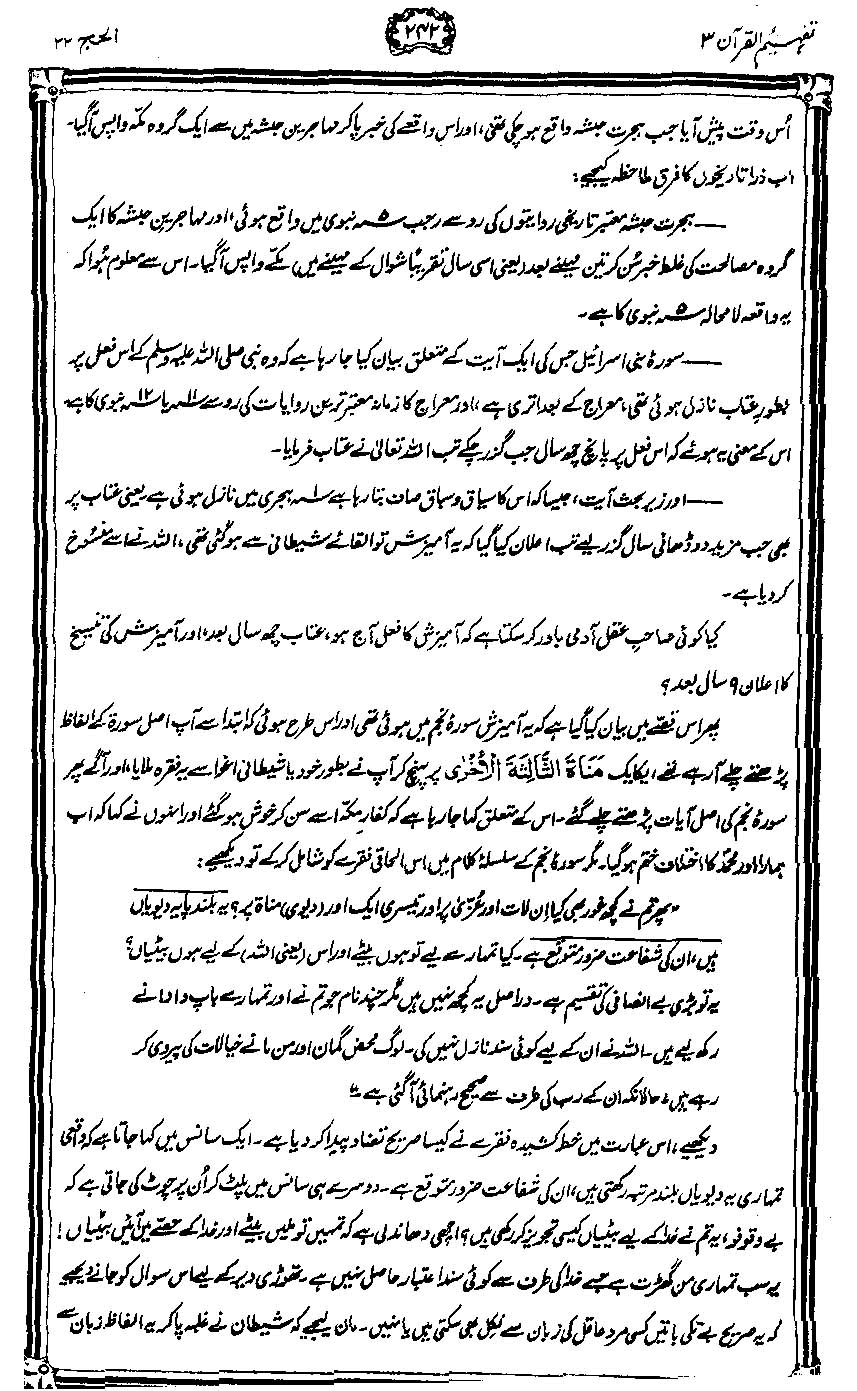 تفہیم القرآن ۳
۲۴۲
الحج ۲۲
اُس وقت پیش آیا جب ہجرت حبشہ واقع ہو چکی تھی، اور اس واقعے کی خبر پا کر مہاجرین حبشہ میں سے ایک گروہ مکہ واپس آگیا۔
اب ذرا تاریخوں کا فرق ملاحظہ کیجیے:
— ہجرت حبشہ معتبر تاریخی روایتوں کی رو سے رجب ۵ نبوی میں واقع ہوئی، اور مہاجرین حبشہ کا ایک
گروہ مصالحت کی غلط خبر سُن کر تین مہینے بعد (یعنی اسی سال تقریباً شوال کے مہینے میں) مکّے واپس آگیا۔ اس سے معلوم ہُوا کہ
یہ واقعہ لامحالہ ۵ نبوی کا ہے۔
— سورۂ بنی اسرائیل جس کی ایک آیت کے متعلق بیان کیا جا رہا ہے کہ وہ نبی صلی اللہ علیہ وسلم کے اس فعل پر
بطور عتاب نازل ہوئی تھی، معراج کے بعد اتری ہے، اور معراج کا زمانہ معتبر ترین روایات کی رو سے ۱۱ یا ۱۲ نبوی کا ہے۔
اس کے معنی یہ ہوئے کہ اس فعل پر پانچ چھ سال جب گزر چکے تب اللہ تعالیٰ نے عتاب فرمایا۔
— اور زیر بحث آیت، جیسا کہ اس کا سیاق و سباق صاف بتا رہا ہے ۱ ہجری میں نازل ہوئی ہے یعنی عتاب پر
بھی جب مزید دو ڈھائی سال گزر لیے تب اعلان کیا گیا کہ یہ آمیزش تو القائے شیطانی سے ہو گئی تھی، اللہ نے اسے منسُوخ
کر دیا ہے۔
کیا کوئی صاحبِ عقل آدمی باور کر سکتا ہے کہ آمیزش کا فعل آج ہو، عتاب چھ سال بعد، اور آمیزش کی تنسیخ
کا اعلان ۹ سال بعد؟
پھر اس قصّے میں بیان کیا گیا ہے کہ یہ آمیزش سورۂ نجم میں ہوئی تھی اور اس طرح ہوئی کہ ابتدا سے آپ اصل سورۃ کے الفاظ
پڑھتے چلے آ رہے تھے، یکایک مَنَاةَ الثَّالِثَةَ الْاُخْرٰى پر پہنچ کر آپ نے بطور خود یا شیطانی اغوا سے یہ فقرہ ملایا، اور آگے پھر
سورۂ نجم کی اصل آیات پڑھتے چلے گئے۔ اس کے متعلق کہا جا رہا ہے کہ کفار مکّہ اسے سن کر خوش ہو گئے اور انہوں نے کہا کہ اب
ہمارا اور محمدؐ کا اختلاف ختم ہو گیا۔ مگر سورۂ نجم کے سلسلۂ کلام میں اس الحاقی فقرے کو شامل کر کے تو دیکھیے:
"پھر تم نے کچھ غور بھی کیا اِن لات اور عُزّیٰ پر اور تیسری ایک اور (دیوی) مناۃ پر؟ یہ بلند پایہ دیویاں
ہیں، ان کی شفاعت ضرور متوقع ہے۔ کیا تمہارے لیے تو ہوں بیٹے اور اس (یعنی اللہ) کے لیے ہوں بیٹیاں؟
یہ تو بڑی بے انصافی کی تقسیم ہے۔ دراصل یہ کچھ نہیں ہیں مگر چند نام جو تم نے اور تمہارے باپ دادا نے
رکھ لیے ہیں۔ اللہ نے ان کے لیے کوئی سند نازل نہیں کی۔ لوگ محض گمان اور من مانے خیالات کی پیروی کر
رہے ہیں، حالانکہ ان کے رب کی طرف سے صحیح رہنمائی آ گئی ہے۔"
دیکھیے، اس عبارت میں خط کشیدہ فقرے نے کیسا صریح تضاد پیدا کر دیا ہے۔ ایک سانس میں کہا جاتا ہے کہ واقعی
تمہاری یہ دیویاں بلند مرتبہ رکھتی ہیں، ان کی شفاعت ضرور متوقع ہے۔ دوسرے ہی سانس میں پلٹ کر اُن پر چوٹ کی جاتی ہے کہ
بے وقوفو، یہ تم نے خدا کے لیے بیٹیاں کیسی تجویز کر رکھی ہیں؟ اچھی دھاندلی ہے کہ تمہیں تو ملیں بیٹے اور خدا کے حصّے میں آئیں بیٹیاں!
یہ سب تمہاری من گھڑت ہے جسے خدا کی طرف سے کوئی سند اعتبار حاصل نہیں ہے۔ تھوڑی دیر کے لیے اس سوال کو جانے دیجیے
کہ یہ صریح بے تکی باتیں کسی مرد عاقل کی زبان سے نکل بھی سکتی ہیں یا نہیں۔ مان لیجیے کہ شیطان نے غلبہ پا کر یہ الفاظ زبان سے